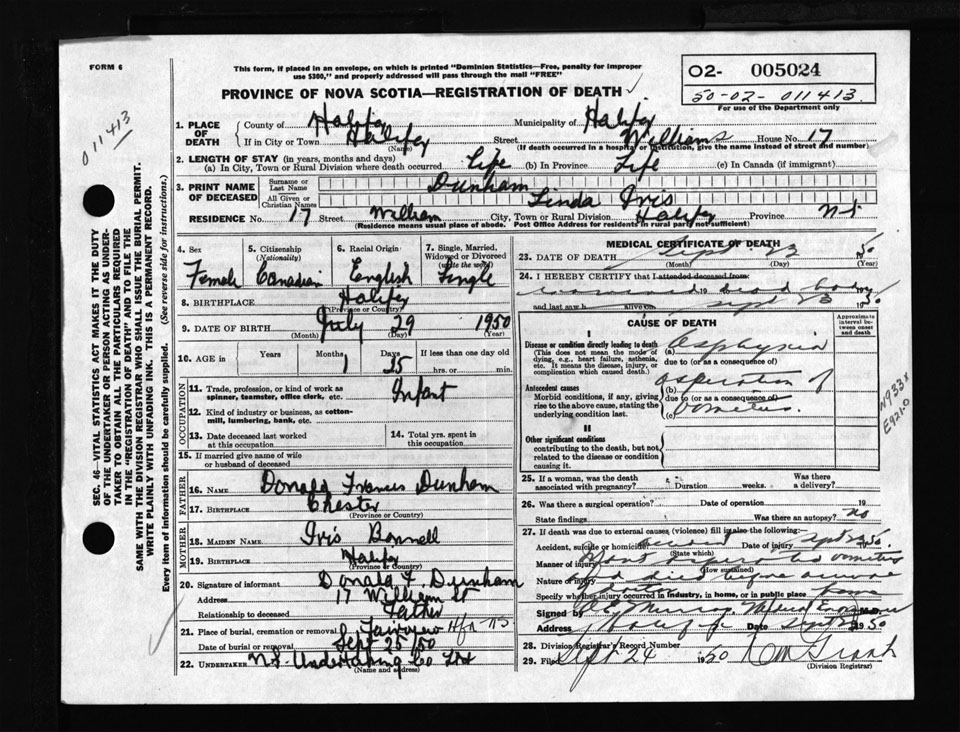 FORM 6
This form, if placed in an envelope, on which is printed "Dominion Statistics—Free, penalty for improper
use $300," and properly addressed will pass through the mail "FREE"
02- 005024
50-02- 011413
For use of the Department only
011413
PROVINCE OF NOVA SCOTIA—REGISTRATION OF DEATH
SEC. 46—VITAL STATISTICS ACT MAKES IT THE DUTY
OF THE UNDERTAKER OR PERSON ACTING AS UNDER-
TAKER TO OBTAIN ALL THE PARTICULARS REQUIRED
IN THE "REGISTRATION OF DEATH" AND TO FILE THE
SAME WITH THE DIVISION REGISTRAR WHO SHALL ISSUE THE BURIAL PERMIT.
WRITE PLAINLY WITH UNFADING INK. THIS IS A PERMANENT RECORD.
Every item of information should be carefully supplied. (See reverse side for instructions.)
1. PLACE OF DEATH
County of Halifax Municipality of Halifax
If in City or Town Halifax Street Williams House No. 17
(Name) (If death occurred in a hospital or institution, give the name instead of street and number)
2. LENGTH OF STAY (in years, months and days)
(a) In City, Town or Rural Division where death occurred Life (b) In Province Life (c) In Canada (if immigrant)
3. PRINT NAME OF DECEASED
Surname or Last Name Dunham
All Given or Christian Names Linda Iris
RESIDENCE No. 17 Street William City, Town or Rural Division Halifax Province NS
(Residence means usual place of abode. Post Office Address for residents in rural parts not sufficient)
4. Sex Female
5. Citizenship (Nationality) Canadian
6. Racial Origin English
7. Single, Married, Widowed or Divorced (write the word) Single
8. BIRTHPLACE Halifax
(Province or Country)
9. DATE OF BIRTH July 29 1950
(Month) (Day) (Year)
10. AGE in Years Months Days If less than one day old
1 25 hrs. or min.
OCCUPATION
11. Trade, profession, or kind of work as
spinner, teamster, office clerk, etc. Infant
12. Kind of industry or business, as cotton-
mill, lumbering, bank, etc.
13. Date deceased last worked
at this occupation
14. Total yrs. spent in
this occupation
15. If married give name of wife
or husband of deceased
FATHER
16. NAME Donald Francis Dunham
17. BIRTHPLACE Chester
(Province or Country)
MOTHER
18. MAIDEN NAME Iris Bonnell
19. BIRTHPLACE Halifax
(Province or Country)
20. Signature of informant Donald F. Dunham
Address 17 William St
Relationship to deceased Father
21. Place of burial, cremation or removal Fairview Hfx NS
Date of burial or removal Sept 25 50
22. UNDERTAKER N.S. Undertaking Co Ltd
(Name and address)
MEDICAL CERTIFICATE OF DEATH
23. DATE OF DEATH Sept 23 1950
(Month) (Day) (Year)
24. I HEREBY CERTIFY that I attended deceased from:
19 dead body
and last saw h alive on Sept 23 1950
CAUSE OF DEATH
Approximate interval between onset and death
I
Disease or condition directly leading to death
(This does not mean the mode of
dying, e.g., heart failure, asthenia,
etc. It means the disease, injury, or
complication which caused death.)
(a) Asphyxia
due to (or as a consequence of)
Antecedent causes
Morbid conditions, if any, giving
rise to the above cause, stating the
underlying condition last.
(b) aspiration of
due to (or as a consequence of)
(c) vomitus.
N933x
E921.0
II
Other significant conditions
contributing to the death, but not
related to the disease or condition
causing it.
25. If a woman, was the death
associated with pregnancy? Duration weeks. Was there a delivery?
26. Was there a surgical operation? Date of operation 19
State findings Was there an autopsy? no
27. If death was due to external causes (violence) fill in also the following:—
Accident, suicide or homicide Date of injury Sept 23 1950
(State which)
Manner of injury vomitus
(How sustained)
Nature of injury and died before
Specify whether injury occurred in industry, in home, or in public place home
Signed by Medical Examiner M.D.
Address Halifax Date Sept 1950
28. Division Registrar's Record Number
29. Filed Sept 24 1950
(Division Registrar)